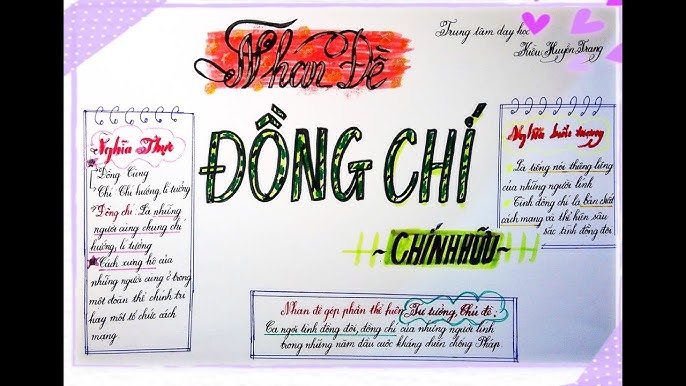 Nhan Đề
Trung tâm dạy học
Kiều Huyền Trang
ĐỒNG CHÍ
~CHÍNH HỮU~
Nghĩa Thực
Đồng: Cùng
Chí: Chí hướng, lí tưởng
Đồng chí: Là những
người cùng chung chí
hướng, lí tưởng
Cách xưng hô của
những người cùng ở trong
một đoàn thể chính trị
hay một tổ chức cách
mạng
Nghĩa biểu tượng
Là tiếng nói thiêng liêng
của những người lính
Tình đồng chí là bản chất
cách mạng và thể hiện sâu
sắc tình đồng đội.
Nhan đề góp phần thể hiện Tư tưởng, Chủ đề:
Ca ngợi tình đồng đội, đồng chí của những người lính
trong những năm đầu cuộc kháng chiến chống Pháp